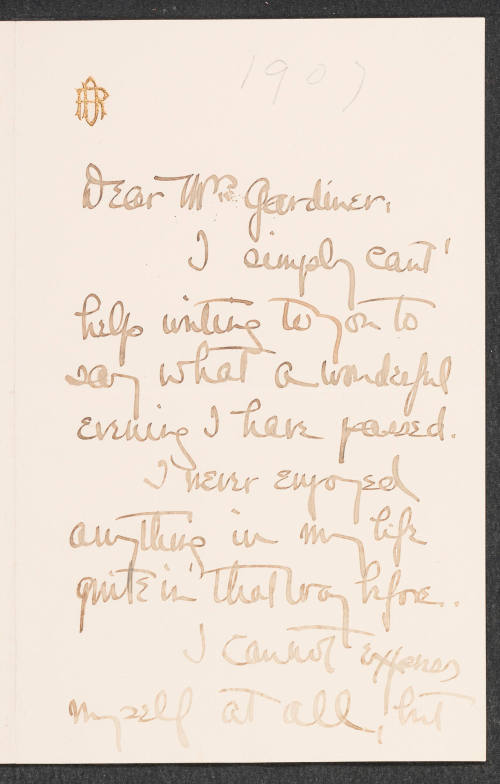 1907
Dear Mrs. Gardiner,
I simply cant'
help writing to you to
say what a wonderful
evening I have passed.
I never enjoyed
anything in my life
quite in that way before..
I cannot express
myself at all, but